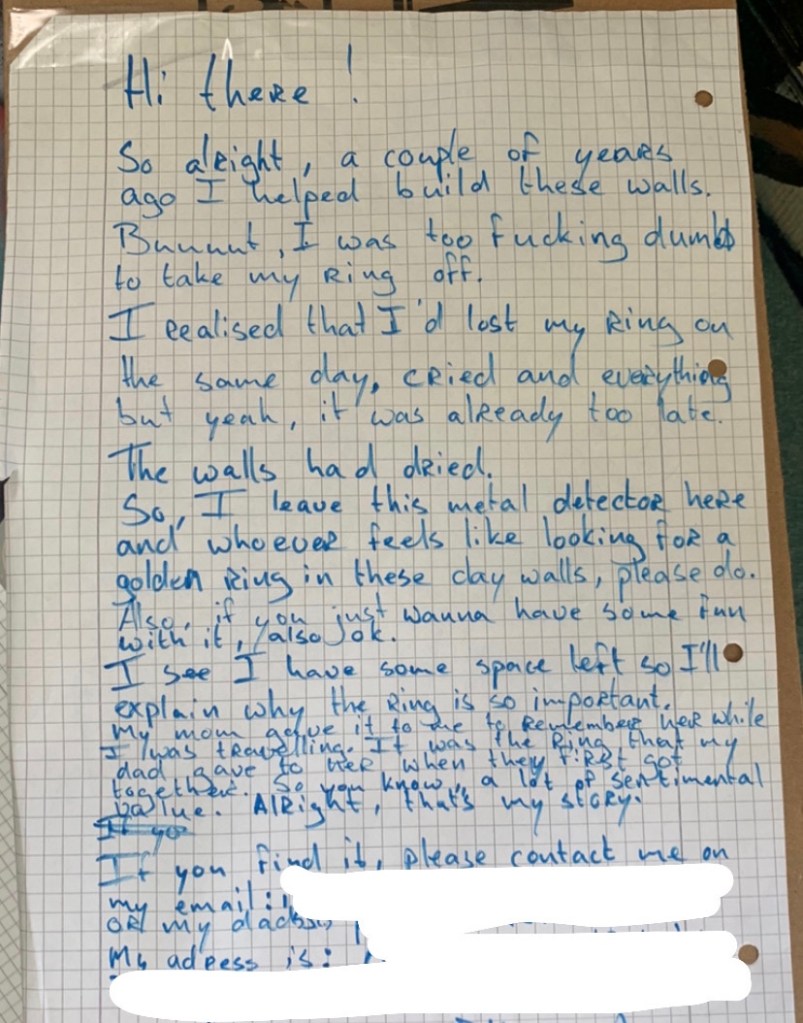 Hi there!
So alright, a couple of years
ago I helped build these walls.
Buuuut, I was too fucking dumb
to take my Ring off.
I realised that I'd lost my Ring on
the same day, cried and everything
but yeah, it was already too late.
The walls had dried.
So, I leave this metal detector here
and whoever feels like looking for a
golden Ring in these clay walls, please do.
Also, if you just wanna have some fun
with it, also ok.
I see I have some space left so I'll
explain why the Ring is so important.
My mom gave it to me to Remember her while
I was travelling. It was the Ring that my
dad gave to her when they first got
together. So you know, a lot of sentimental
value. Alright, that's my story.
If yo
If you find it, please contact me on
my email:
OR my dads
My adress is: